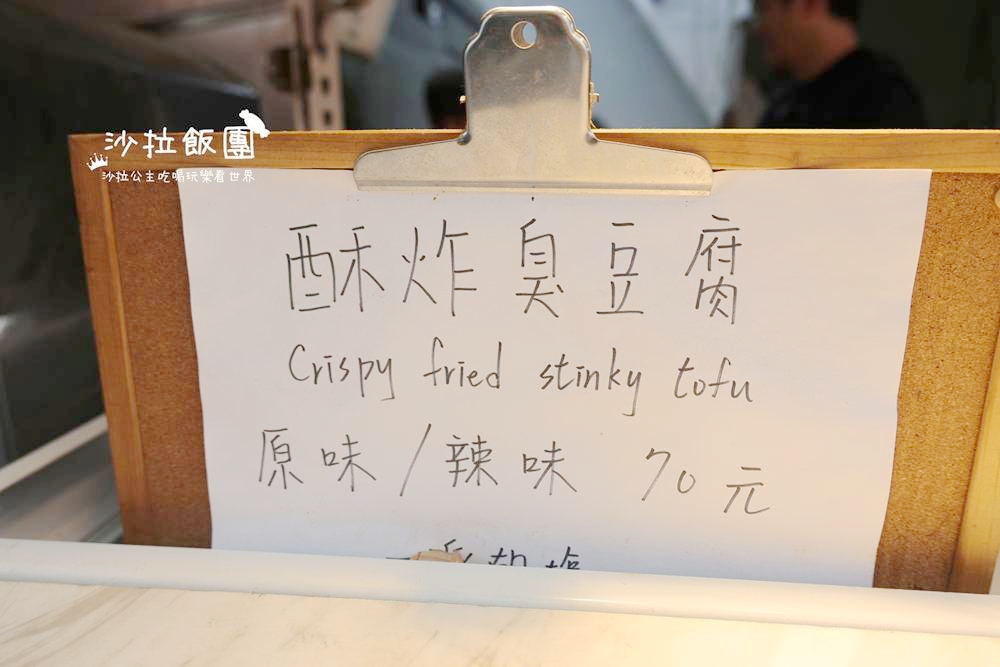 沙拉飯團
沙拉公主吃喝玩樂看世界
酥炸臭豆腐
Crispy fried stinky tofu
原味/辣味 70元